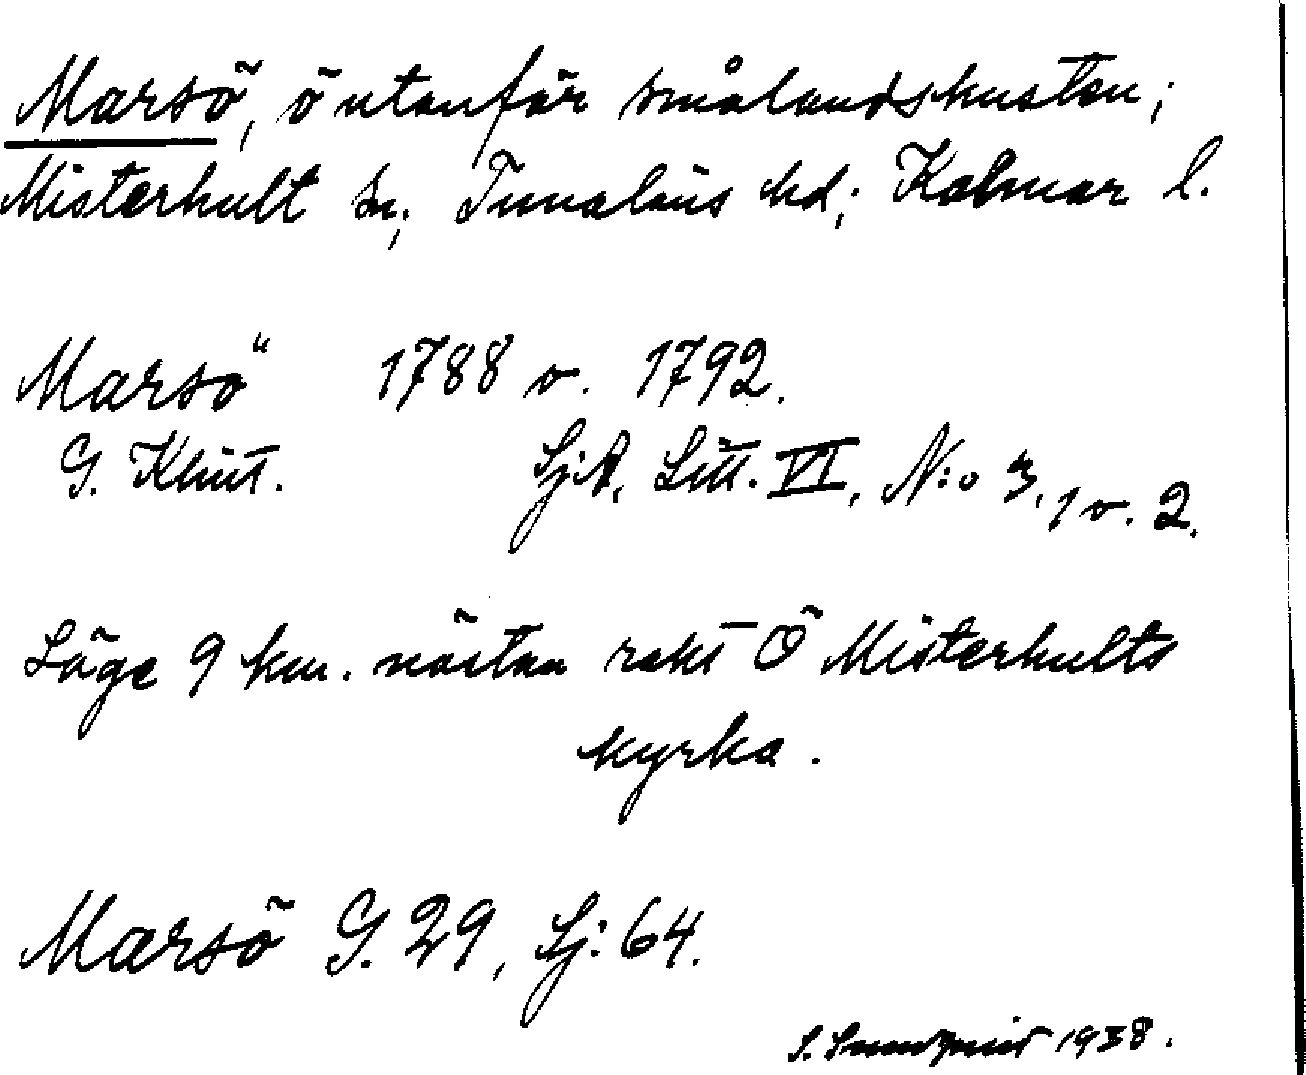 Marsö, ö utanför smålandskusten;
Misterhult sn; Tunaläns hd; Kalmar l.
Marsö 1788 o. 1792.
G. Klint. Sj.A, Litt. VI, N:o 3, 1 o. 2.
Läge 9 km. nästan rakt Ö Misterhults
kyrka.
Marsö G. 29, Sj: 64.
S. 1938.